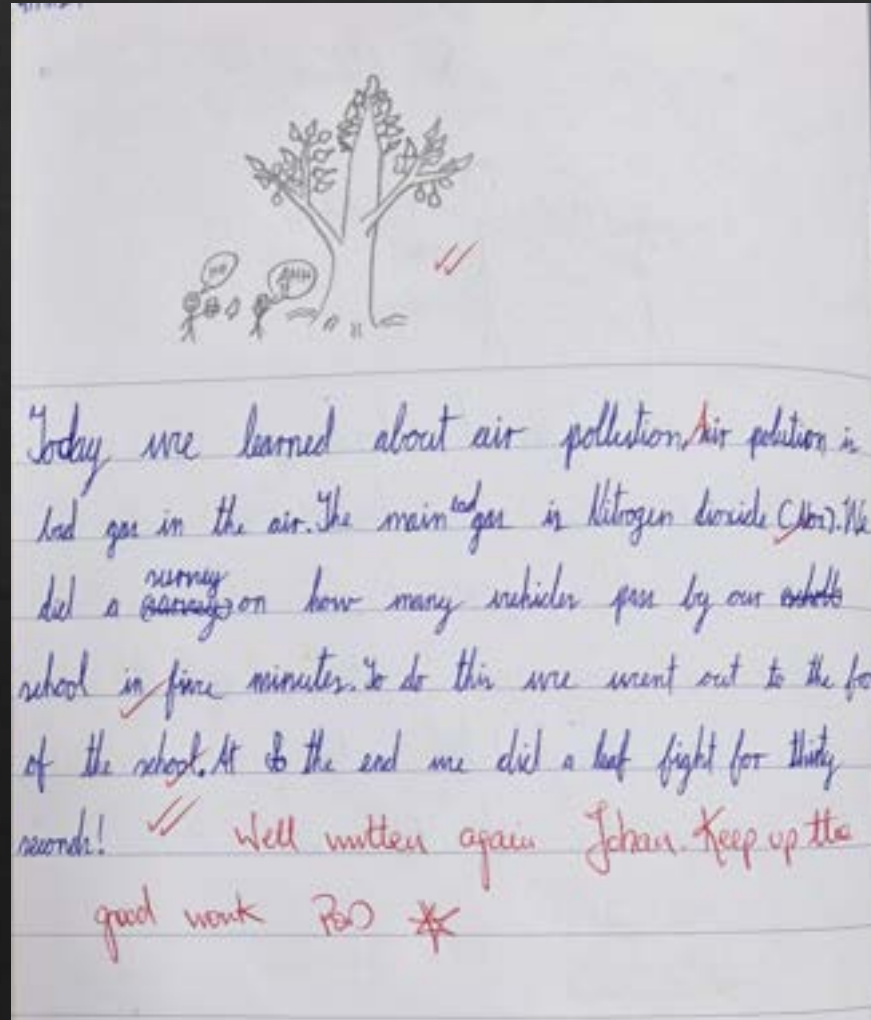 AHH
Today we learned about air pollution. Air polution is
bad gas in the air. The main bad gas is Nitrogen dioxide (No2). We
did a survey on how many vehicles pass by our
school in five minutes. To do this we went out to the fo
of the school. At the end we did a leaf fight for thirty
seconds! Well written again Johan. Keep up the
good work